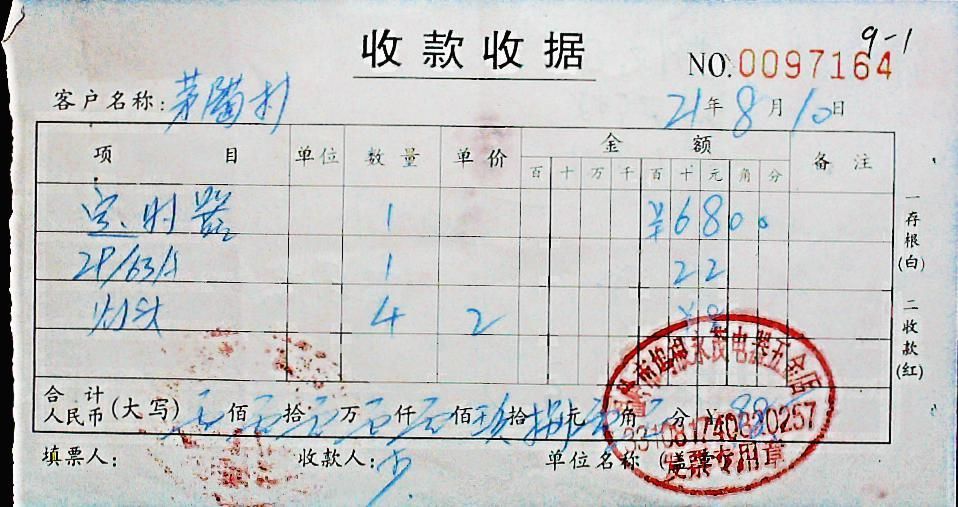 9-1
收款收据
NO.0097164
客户名称:茅陶村
21年8月10日
项目 单位 数量 单价 金额 备注
百 十 万 千 百 十 元 角 分
定时器 1 ¥6800
2P/63A 1 22
灯头 4 2 ¥8
合计
人民币(大写) 佰 拾 万 仟 佰玖拾捌元 角 分 ¥ 98
填票人: 收款人: 单位名称(盖章)
一存根(白) 二收款(红)
永茂电器五金店
331081740830257
发票专用章